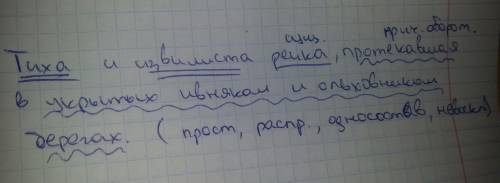 сущ. прич. оборот.
Тиха и извилиста речка, протекавшая
в укрытых ивняком и ольховником
берегах. (прост, распр., односостав, невоскл)